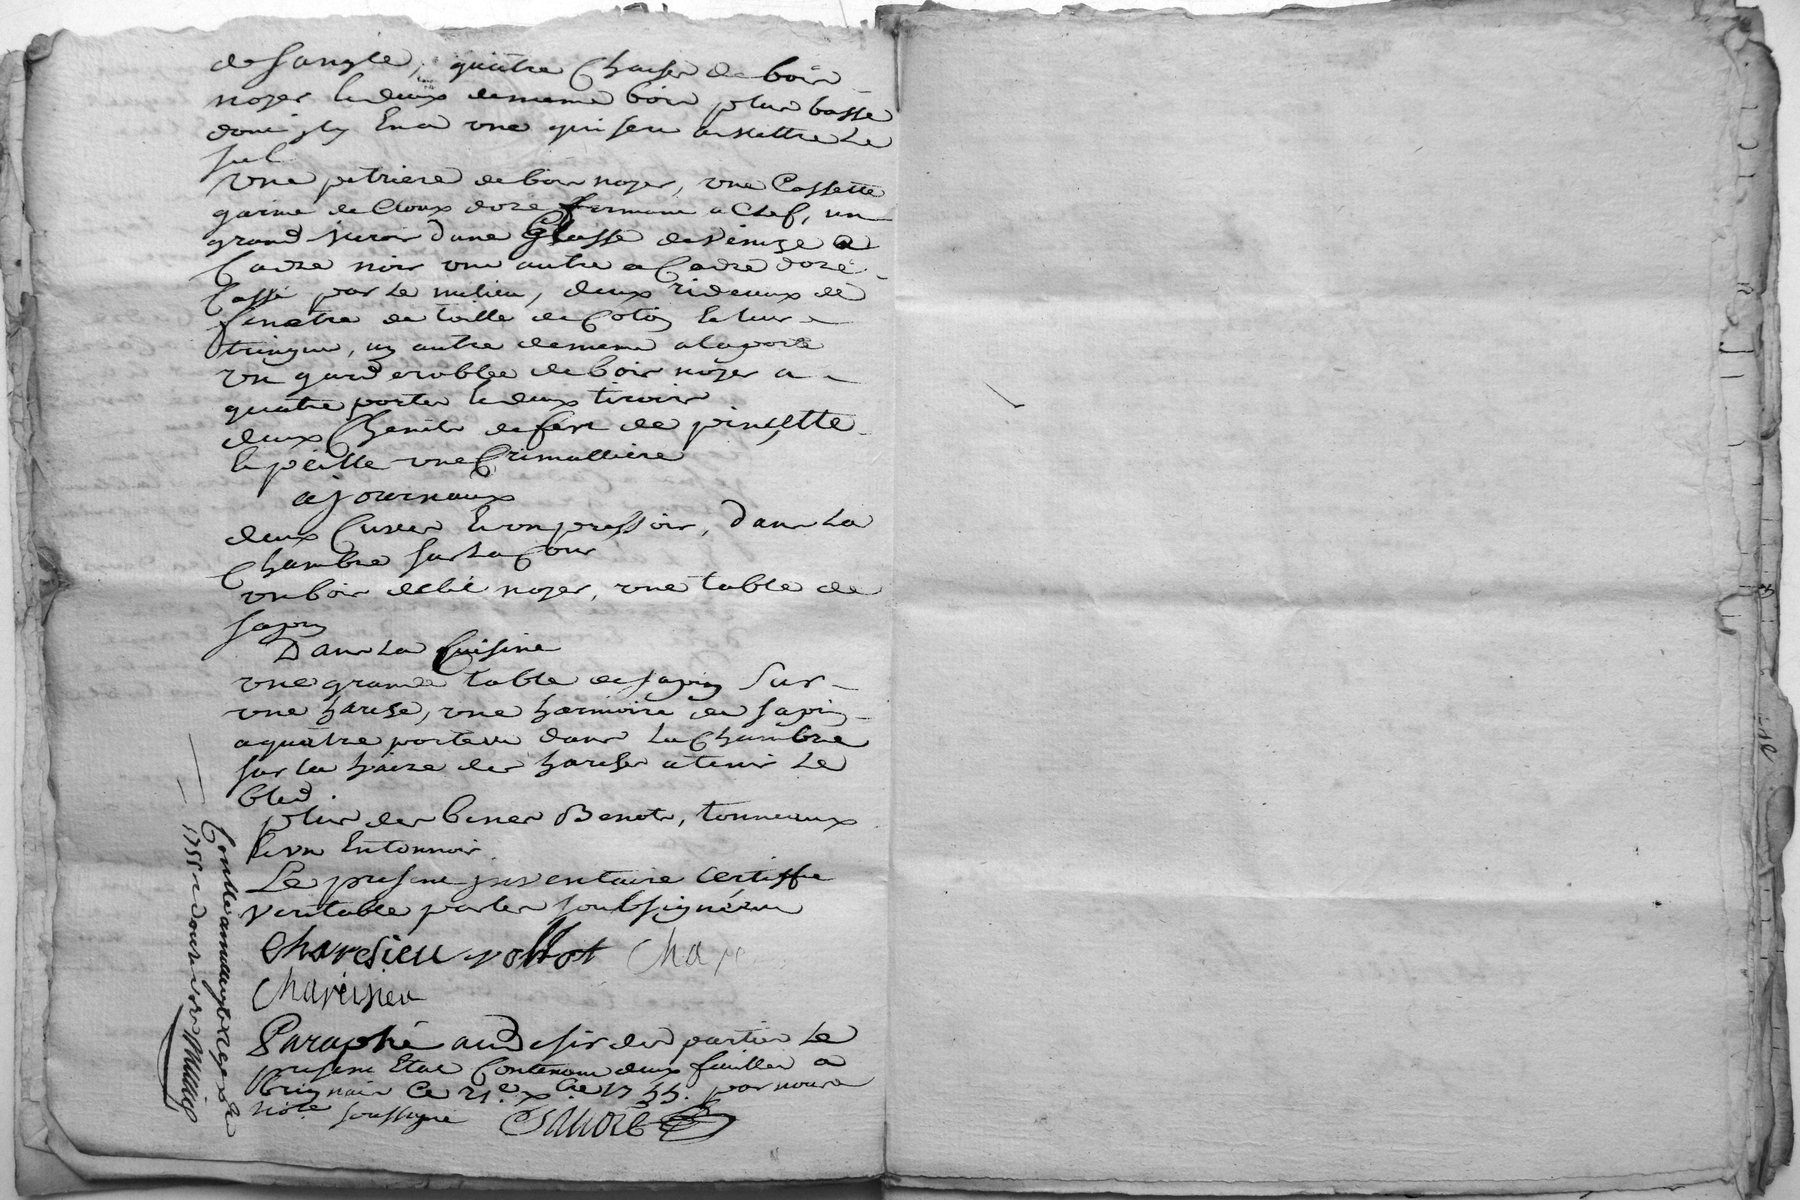 de sangle, quattre Chaises de bois
noyer & deux de meme bois plus basse
dont jly En a une qui sert a Mettre Le
sel
Une petriere de bois noyer, une Cassette
garnie de Cloux doré fermant a Clef, un
grand miroir d'une Glasse de Venize a
Cadre noir une autre a Cadre doré
Cassé par Le milieu, deux rideaux de
fenetre de toille de Coton & leur
tringue, un autre de meme a la porte
Un garderoble de bois noyer a
quatre portes & deux tiroirs
deux Chenits de fert de pinsette
& pêille une Crimalliere
a journaux
deux Cuves & un pressoir, dans La
Chambre sur La Cour
un bois de lit noyer, une table de
sapin
Dans La Cuisine
une grande table de sapin Sur
une harche, une harmoire de sapin
a quattre portes dans La Chambre
sur La haize des harches a tenir Le
bled
plus des benes Benots, tonneaux
& un Entonnoir
Le present jnventaire Certiffie
veritable par les soubsignés
Charesieu vollot Cha
Chareisieu
Paraphé au desir des parties Le
present Etat Contenant deux feuilles a
brignais Ce 21.e x.bre 1755. par nous
no.re soussigné
1755